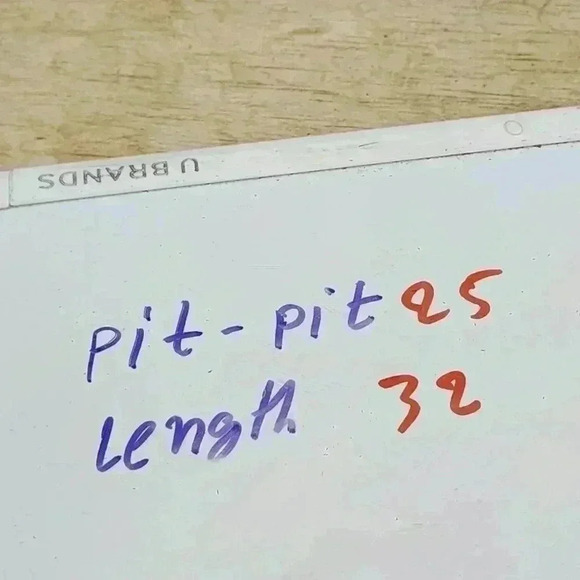 U BRANDS
pit - pit 25
Length 32